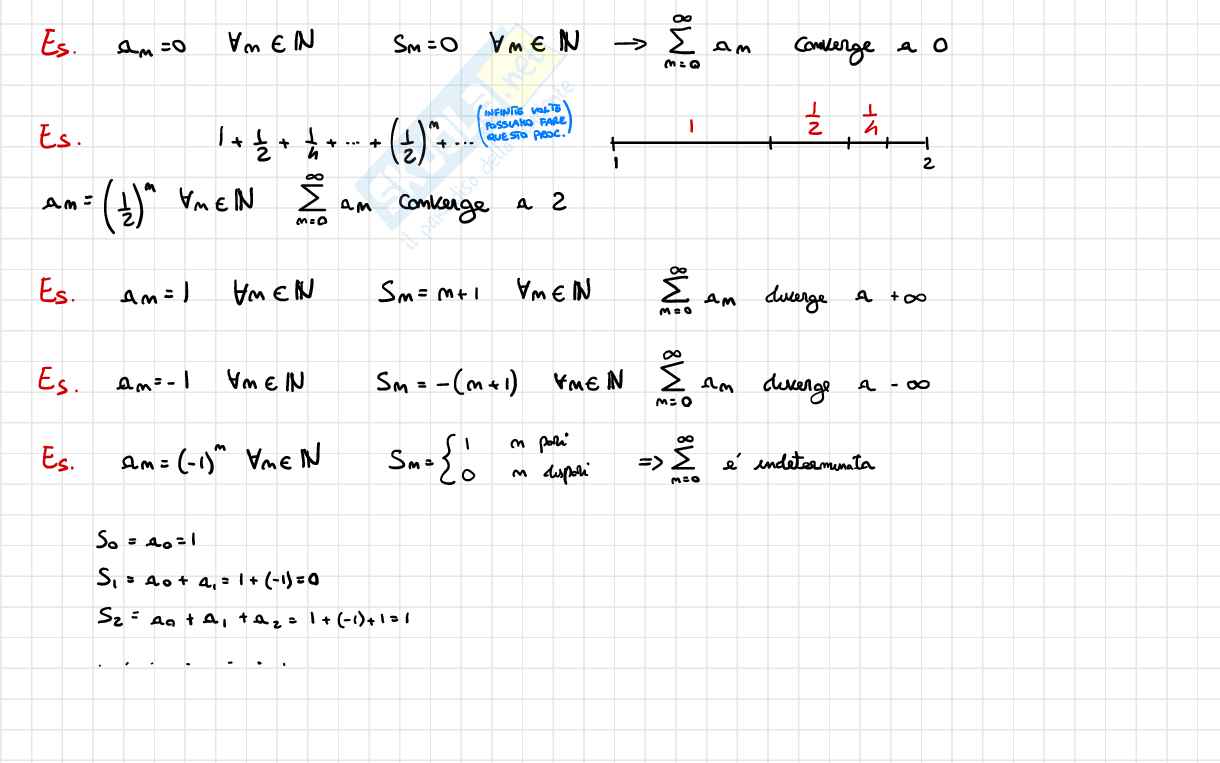 Es. aₙ=0 ∀n∈ℕ Sₙ=0 ∀n∈ℕ → ∑_{n=0}^{∞} aₙ converge a 0
Es. 1 + 1/2 + 1/4 + ... + (1/2)ⁿ + ... (INFINITE VOLTE POSSIAMO FARE QUESTO PROC.)
1 1/2 1/4
1 2
aₙ = (1/2)ⁿ ∀n∈ℕ ∑_{n=0}^{∞} aₙ converge a 2
Es. aₙ = 1 ∀n∈ℕ Sₙ = n+1 ∀n∈ℕ ∑_{n=0}^{∞} aₙ diverge a +∞
Es. aₙ = -1 ∀n∈ℕ Sₙ = -(n+1) ∀n∈ℕ ∑_{n=0}^{∞} aₙ diverge a -∞
Es. aₙ = (-1)ⁿ ∀n∈ℕ Sₙ = { 1 n pari
0 n dispari => ∑_{n=0}^{∞} é indeterminata
S₀ = a₀ = 1
S₁ = a₀ + a₁ = 1 + (-1) = 0
S₂ = a₀ + a₁ + a₂ = 1 + (-1) + 1 = 1
. . . . . . .